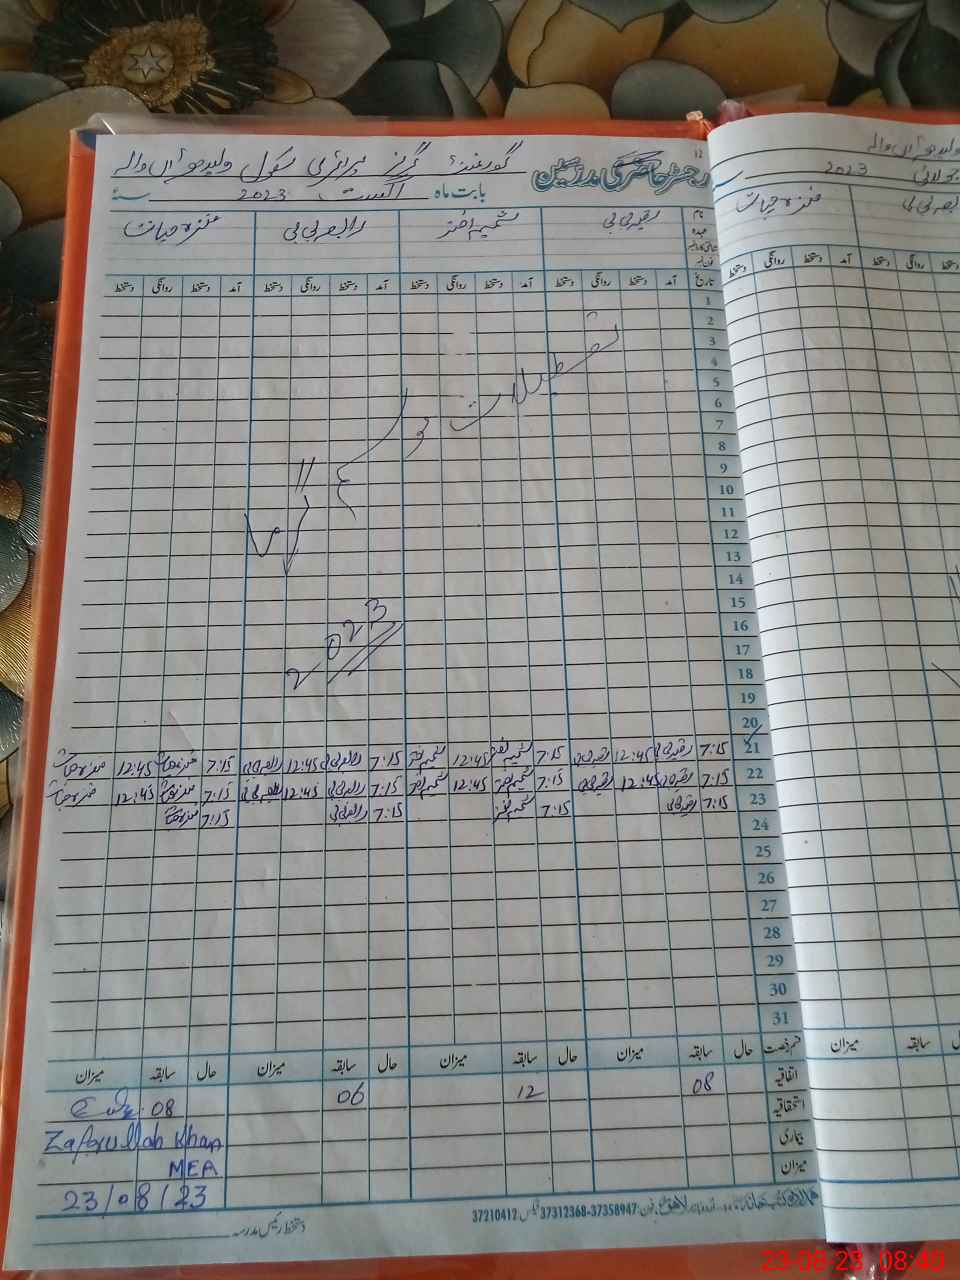 رجسٹر حاضری مدرسین
گورنمنٹ گرلز پرائمری سکول
بابت ماہ اگست 2023 سنۂ
12
نام
عہدہ
رقیہ بی بی شمیم اختر رابعہ بی بی منزہ حیات
تاریخ آمد دستخط روانگی دستخط آمد دستخط روانگی دستخط آمد دستخط روانگی دستخط آمد دستخط روانگی دستخط
1
2
3
4
5
6
7
8
9
10
11
12
13
14
15
16
17
18
19
20
تعطیلات
2023
21 7:15 رقیہ بی بی 12:45 رقیہ بی بی 7:15 شمیم اختر 12:45 شمیم اختر 7:15 رابعہ بی بی 12:45 رابعہ بی بی 7:15 منزہ حیات 12:45 منزہ حیات
22 7:15 رقیہ بی بی 12:45 رقیہ بی بی 7:15 شمیم اختر 12:45 شمیم اختر 7:15 رابعہ بی بی 12:45 رابعہ بی بی 7:15 منزہ حیات 12:45 منزہ حیات
23 7:15 رقیہ بی بی 7:15 شمیم اختر 7:15 رابعہ بی بی 7:15 منزہ حیات
24
25
26
27
28
29
30
31
قسم رخصت حال سابقہ میزان حال سابقہ میزان حال سابقہ میزان حال سابقہ میزان
اتفاقیہ 08 12 06 08
استحقاقیہ
بیماری
میزان
Zafarullah Khan
MEA
23/08/23
فون: 37358947-37312368 فیکس: 37210412
دستخط رئیس مدرسہ
جولائی 2023
منزہ حیات
دستخط روانگی دستخط آمد دستخط روانگی دستخط
میزان سابقہ
23-08-23 08:40